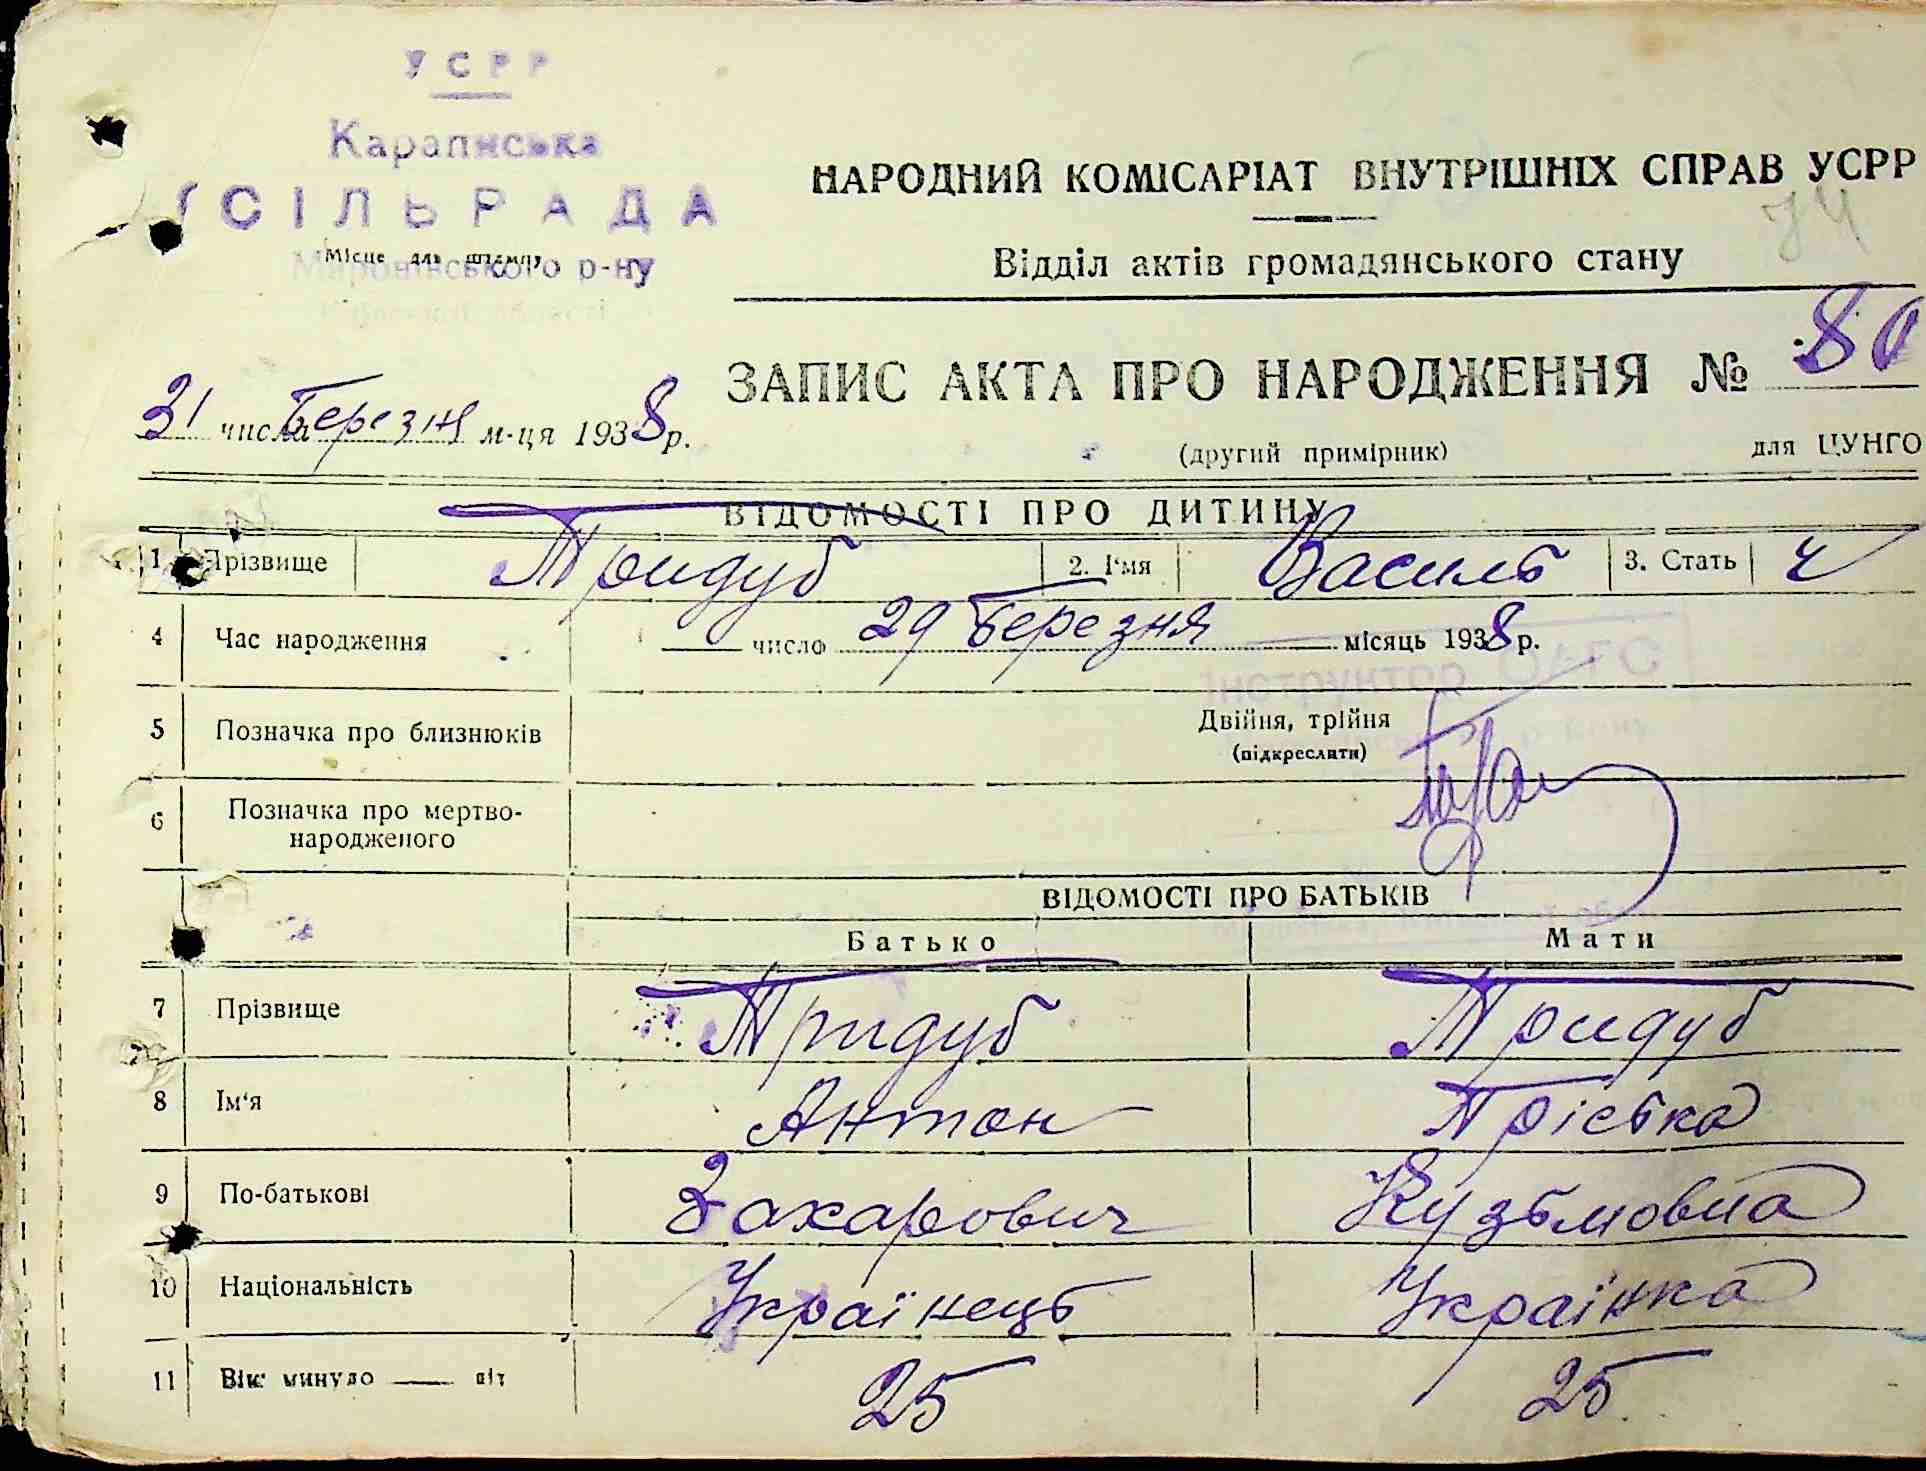 УСРР
Караписька
СІЛЬРАДА
Місце для штампу
Миронівського р-ну
НАРОДНИЙ КОМІСАРІАТ ВНУТРІШНІХ СПРАВ УСРР
74
Відділ актів громадянського стану
ЗАПИС АКТА ПРО НАРОДЖЕННЯ № 80
31 числа березня м-ця 1938 р.
(другий примірник) для ЦУНГО
ВІДОМОСТІ ПРО ДИТИНУ
1 Прізвище Тридуб 2. І'мя Василь 3. Стать ч
4 Час народження число 29 березня місяць 1938 р.
Інструктор ОАГС
5 Позначка про близнюків Двійня, трійня
(підкреслити)
6 Позначка про мертво-
народженого
ВІДОМОСТІ ПРО БАТЬКІВ
Батько Мати
7 Прізвище Тридуб Тридуб
8 Ім'я Антон Пріська
9 По-батькові Захарович Кузьмовна
10 Національність Українець Українка
11 Вік: минуло літ 25 25